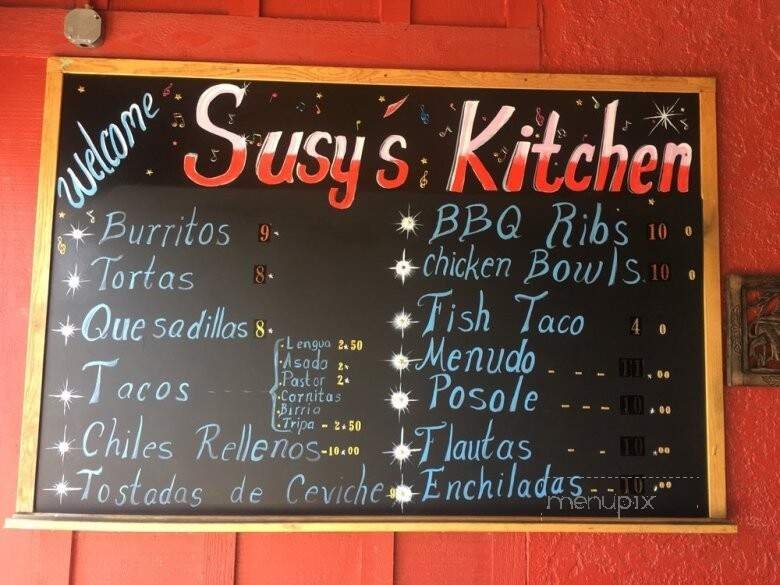 Welcome
Susy's Kitchen
Burritos 9
Tortas 8
Quesadillas 8
Tacos
Lengua 2.50
Asada 2
Pastor 2
Carnitas
Birria
Tripa - 2.50
Chiles Rellenos - 10.00
Tostadas de Ceviche
BBQ Rib's 10 0
chicken Bowls 10 0
Fish Taco 4 0
Menudo - - - 11.00
Posole - - - 10.00
Flautas - - 10.00
Enchiladas - - 10.00
menupix